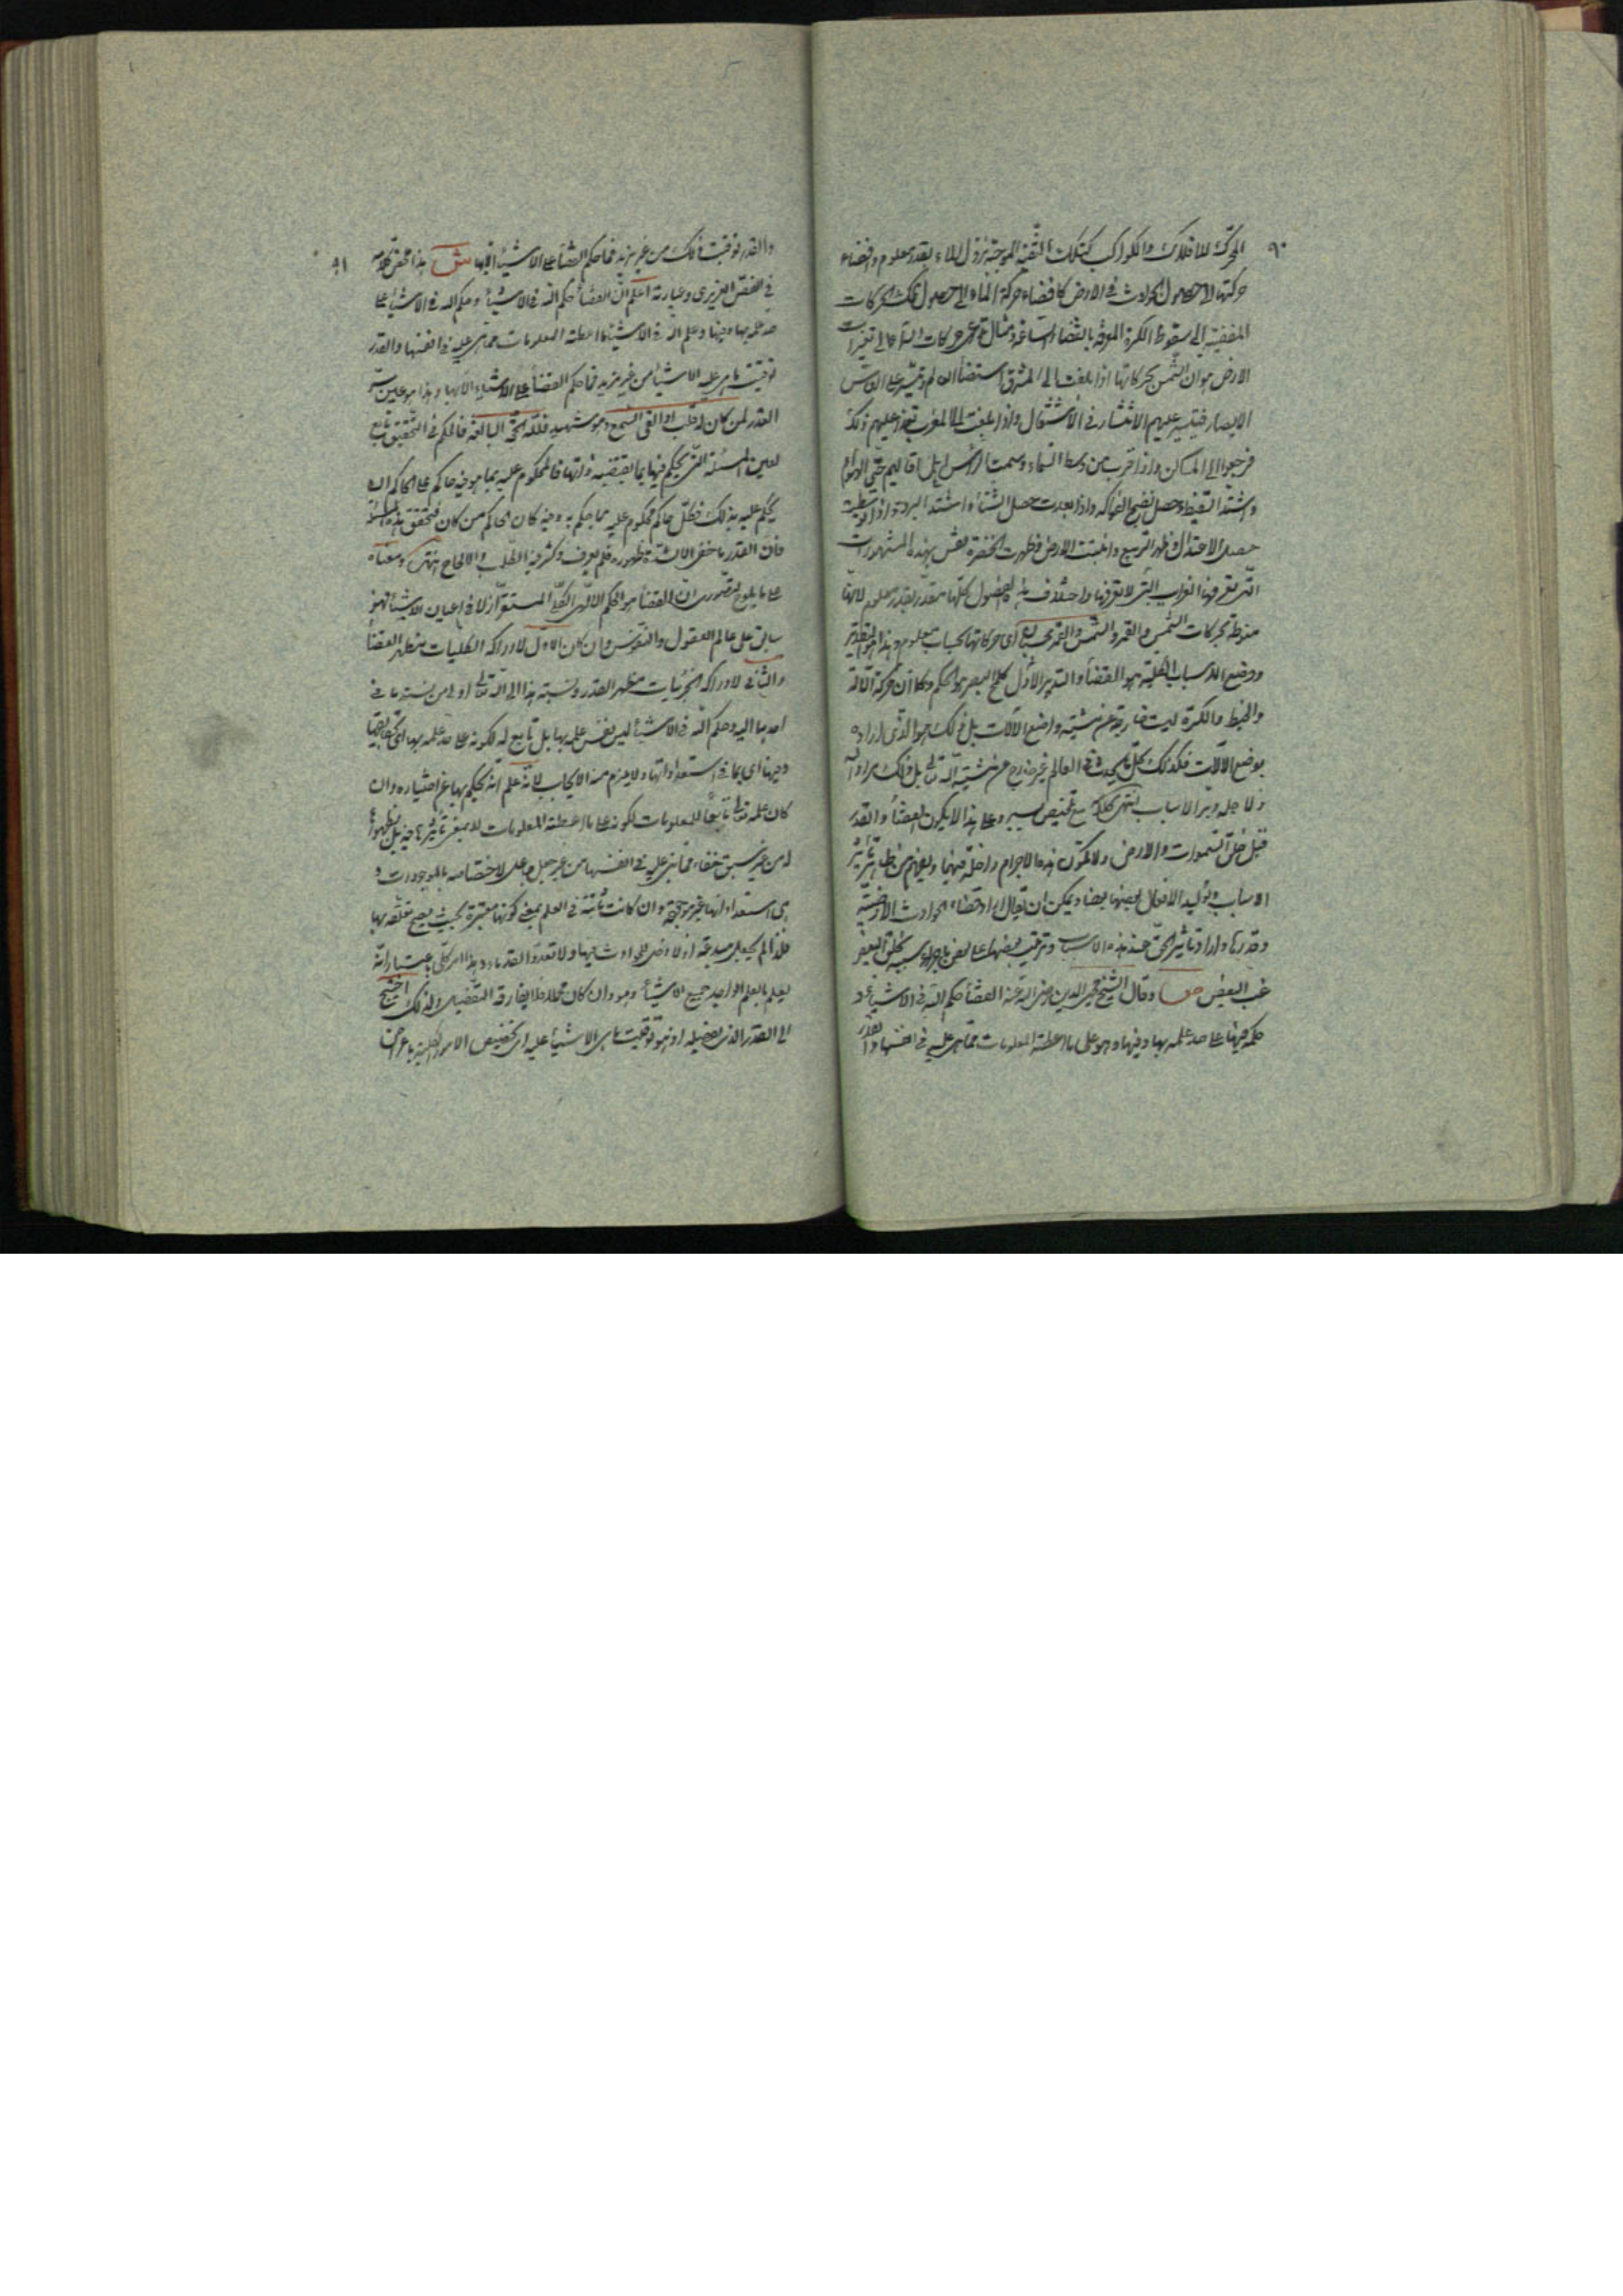 ٩٠
المحركة للافلاك والكواكب كتلك الثقبة الموجبة نزول الماء بقدر معلوم وافضاء
حركتها الى حصول الحوادث في الارض كافضاء حركة الماء الى حصول تلك الحركات
المفضية الى سقوط الكرة المعرفة بانقضاء الساعة ومثال تداعي حركات السماء الى تغيرات
الارض هو ان الشمس بحركاتها اذا بلغت الى المشرق استضاء العالم وتيسر على الناس
الابصار فيتيسر عليهم الانتشار في الاشغال واذا بلغت المغرب تعذر عليهم ذلك
فرجعوا الى المساكن واذا قرب من وسط السماء وسمت الرأس اهل الاقاليم حمي الهواء
واشتد القيظ وحصل نضج الفواكه واذا بعدت حصل الشتاء واشتد البرد واذا توسطت
حصل الاعتدال وظهر الربيع وانبتت الارض وظهرت الخضرة فقس بهذه المشهورات
التي تعرفها الغرايب التي لا تعرفها واختلاف هذه الفصول كلها مقدر بقدر معلوم لانها
منوطة بحركات الشمس والقمر والشمس والقمر بحسبان اي حركاتهما بحساب معلوم وهذا هو التقدير
ووضع الاسباب الكلية هو القضاء والتدبير الاول كلمح البصر هو الحكم وكما ان حركة الآلة
والخيط والكرة ليست خارجة عن مشيته واضع الآلات بل ذلك هو الذي اراده
بوضع الآلات فكذلك كل ما يحدث في العالم غير خارج عن مشيته الله تعالى بل ذلك مراد الله
ولاجله دبر الاسباب انتهى كلامه مع تلخيص يسير وعلى هذا لا يكون القضاء والقدر
قبل خلق السموات والارض ولا تكون هذه الاجرام داخلة فيهما ويفهم من ظاهره تأثير
الاسباب وتوليد الافعال بعضها بعضا ويمكن ان يقال اراد قضاء الحوادث الارضية
وقدرها واراد تأثير الحق عند هذه الاسباب وترتيب بعضها على بعض باجراء سنته بخلق البعض
عقب البعض ص وقال الشيخ محيي الدين رضي الله عنه القضاء حكم الله في الاشياء و
حكمه فيها على حد علمه بها وفيها وهو على ما اعطته المعلومات مما هي عليه في انفسها والقدر
٩١
والقدر توقيت ذلك من غير مزيد فما حكم القضاء على الاشياء الا بها ش هذا محض كلامه
في الفص العزيري وعبارته اعلم ان القضاء حكم الله في الاشياء وحكم الله في الاشياء على
حد علمه بها وفيها وعلم الله في الاشياء ما اعطته المعلومات مما هي عليه في انفسها والقدر
توقيت ما هي عليه الاشياء من غير مزيد فما حكم القضاء على الاشياء الا بها وهذا هو عين سر
القدر لمن كان له قلب او القى السمع وهو شهيد فلله الحجة البالغة فالحكم في التحقيق تابع
لعين المسئلة التي يحكم فيها بما يقتضيه ذاتها فالمحكوم عليه بما هو فيه حاكم على الحاكم ان
يحكم عليه بذلك فكل حاكم محكوم عليه بما حكم به وفيه كان الحاكم من كان فتحقق هذه المسئلة
فان القدر ما خفي الا لشدة ظهوره فلم يعرف وكثر فيه الطلب والالحاح انتهى ومعناه
على ما يلوح لتصوري ان القضاء هو الحكم الالهي الكلي المستقر ازلا في اعيان الاشياء فهو
سابق على عالم العقول والنفوس وان كان الاول لادراكه الكليات مظهر القضاء
والثاني لادراكه الجزئيات مظهر القدر ونسبته هذا الى الله تعالى اولى من نسبته ما في
احدهما اليه وحكم الله في الاشياء ليس نفس علمه بها بل تابع له لكونه على حد علمه بها اي بحقايقها
وفيها اي بما في استعداداتها ولا يلزم منه الايجاب لانه علم انه يحكم بها عن اختياره وان
كان علمه تعالى تابعا للمعلومات لكونه على ما اعطته المعلومات لا بمعنى تأثيرها فيه بل بظهورها
له من غير سبق خفاء مما هي عليه في انفسها من غير جعل جاعل لاختصاصه بالموجودات و
هي استعداداتها غير موجودة وان كانت ثابتة في العلم بمعنى كونها متميزة بحيث يصح تعلقه بها
فلذا لم يجعل مبدعة اذ لا وصل للحوادث فيها ولا تعدد القدماء وهذا امر كلي باعتبار انه
يعلم بالعلم الواحد جميع الاشياء وهو وان كان مجملا لا يفارقه التفصيل ولذلك احتيج
الى القدر الذي تفصيله اذ هو توقيت ما هي الاشياء عليه اي تخصيص الامور الكلية باعراض